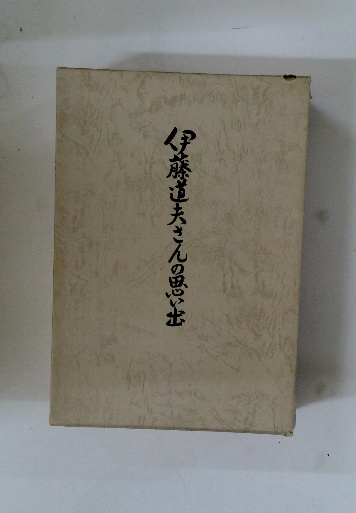 伊藤道夫さんの思い出